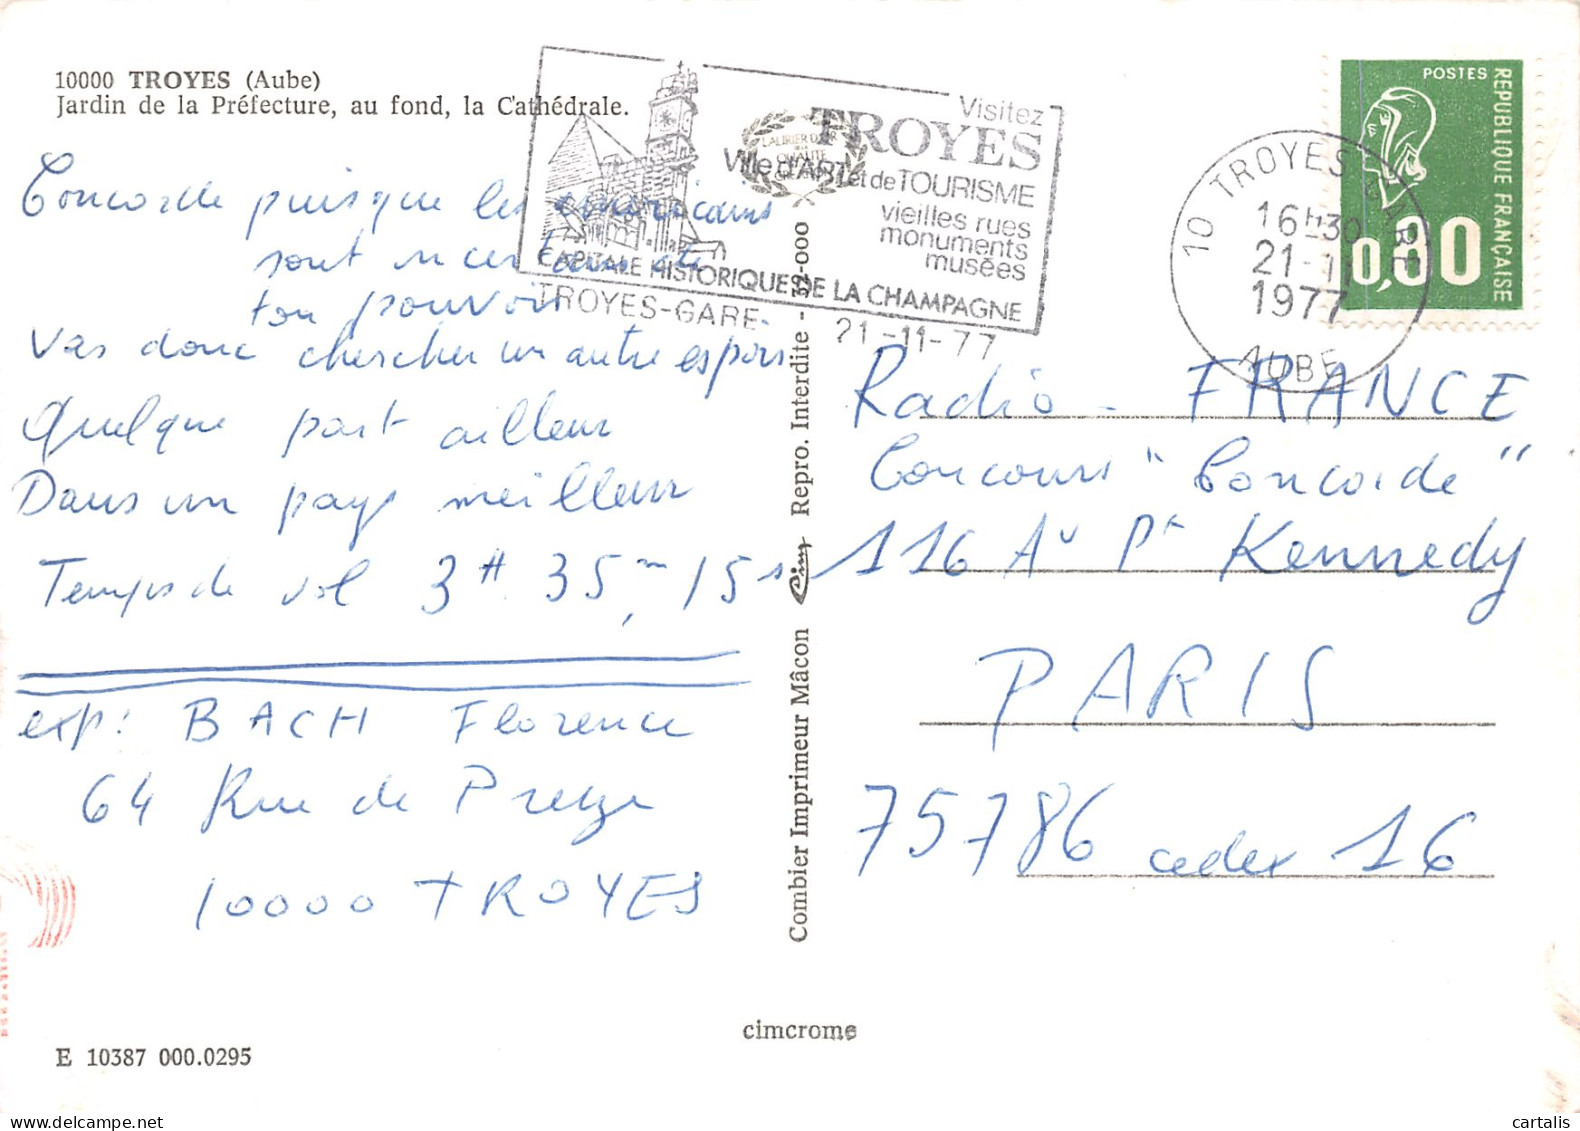 10000 TROYES (Aube)
Jardin de la Préfecture, au fond, la Cathédrale.
Concorde puisque les américains
sont incertains de
ton pouvoir
Vas donc chercher un autre espoir
Quelque part ailleur
Dans un pays meilleur
Temps de vol 3H 35m, 15s
exp: BACH Florence
64 Rue de Preize
10000 TROYES
E 10387 000.0295
Visitez
TROYES
Ville d'ART et de TOURISME
vieilles rues
monuments
musées
CAPITALE HISTORIQUE DE LA CHAMPAGNE
TROYES-GARE
21-11-77
LAURIER D'OR
QUALITÉ
Combier Imprimeur Mâcon Cim Repro. Interdite - 39-000
cimcrome
10 TROYES GARE
16H30
21-11
1977
AUBE
POSTES
REPUBLIQUE FRANÇAISE
0,80
Radio - FRANCE
Concours "Concorde"
116 Av Pt Kennedy
PARIS
75786 cedex 16
cartalis